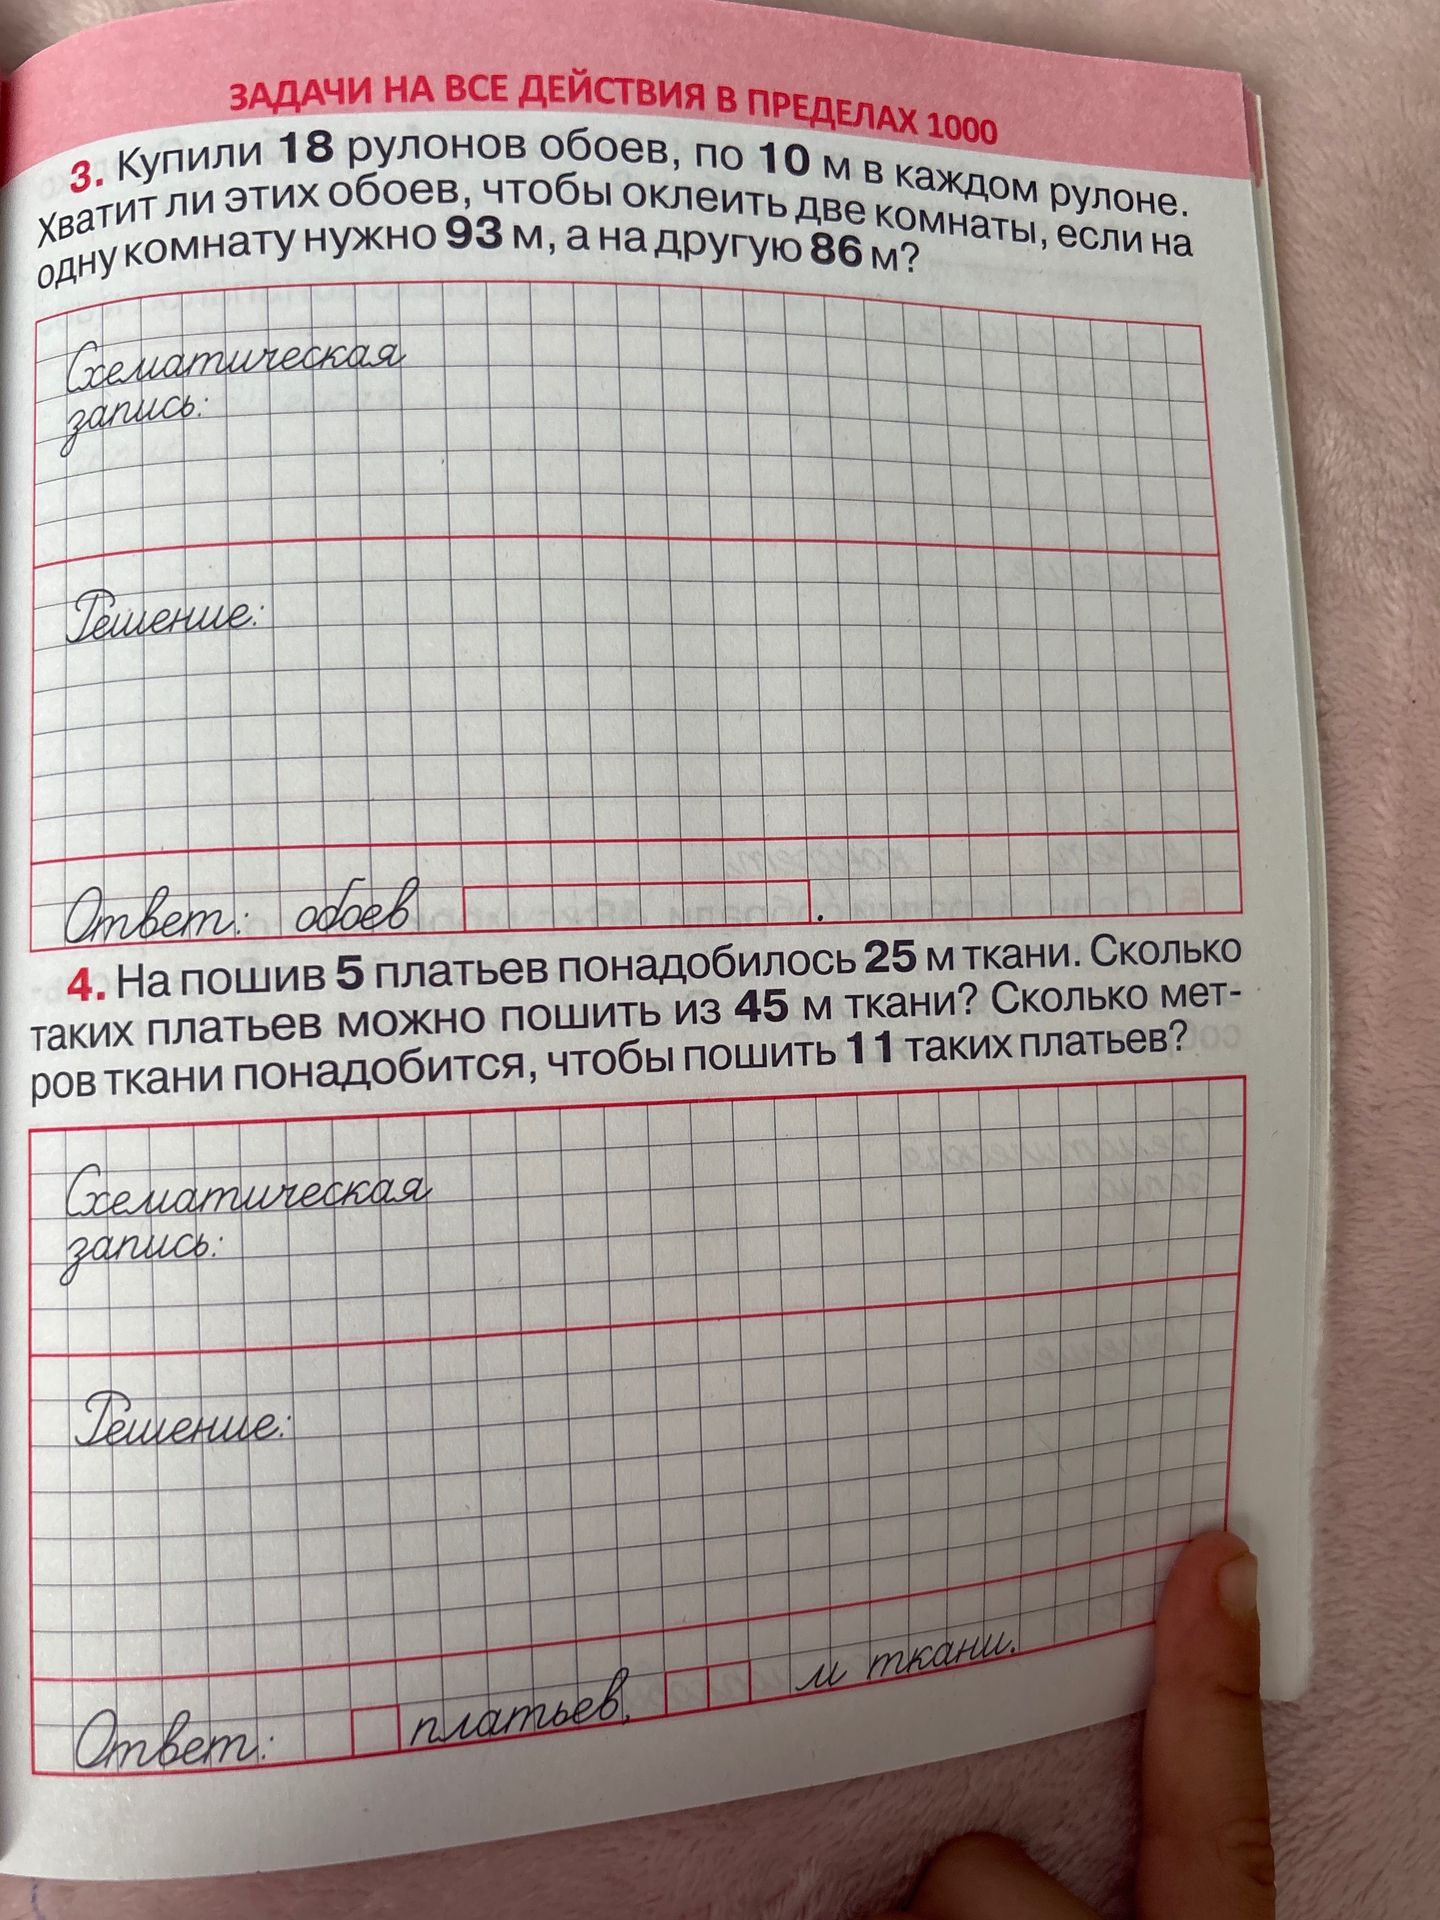 ЗАДАЧИ НА ВСЕ ДЕЙСТВИЯ В ПРЕДЕЛАХ 1000
3. Купили 18 рулонов обоев, по 10 м в каждом рулоне.
Хватит ли этих обоев, чтобы оклеить две комнаты, если на
одну комнату нужно 93 м, а на другую 86 м?
Схематическая
запись:
Решение:
Ответ: обоев .
4. На пошив 5 платьев понадобилось 25 м ткани. Сколько
таких платьев можно пошить из 45 м ткани? Сколько мет-
ров ткани понадобится, чтобы пошить 11 таких платьев?
Схематическая
запись:
Решение:
Ответ: платьев, м ткани.